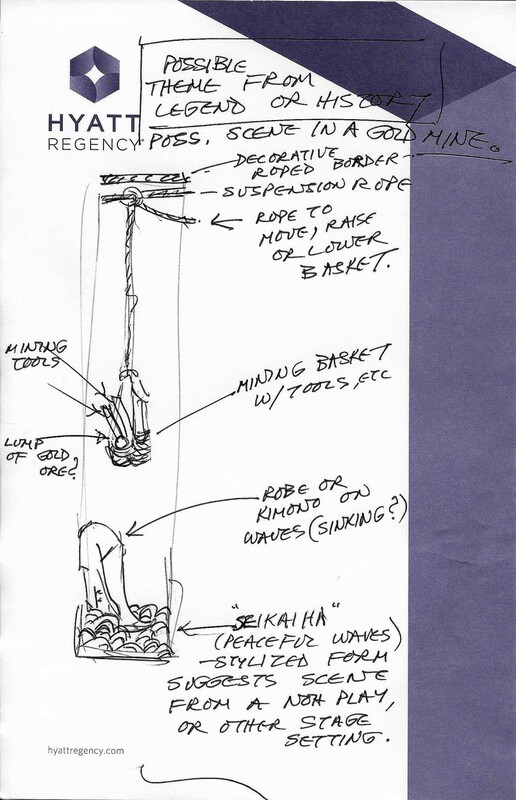 POSSIBLE
THEME FROM
LEGEND OR HISTORY
HYATT
REGENCY
POSS. SCENE IN A GOLD MINE.
DECORATIVE
ROPED BORDER
SUSPENSION ROPE
ROPE TO
MOVE, RAISE
OR LOWER
BASKET.
MINING
TOOLS
MINING BASKET
W/TOOLS, ETC
LUMP
OF GOLD
ORE?
ROBE OR
KIMONO ON
WAVES (SINKING?)
"SEIKAIHA"
(PEACEFUL WAVES)
-STYLIZED FORM
SUGGESTS SCENE
FROM A NOH PLAY,
OR OTHER STAGE
SETTING.
hyattregency.com